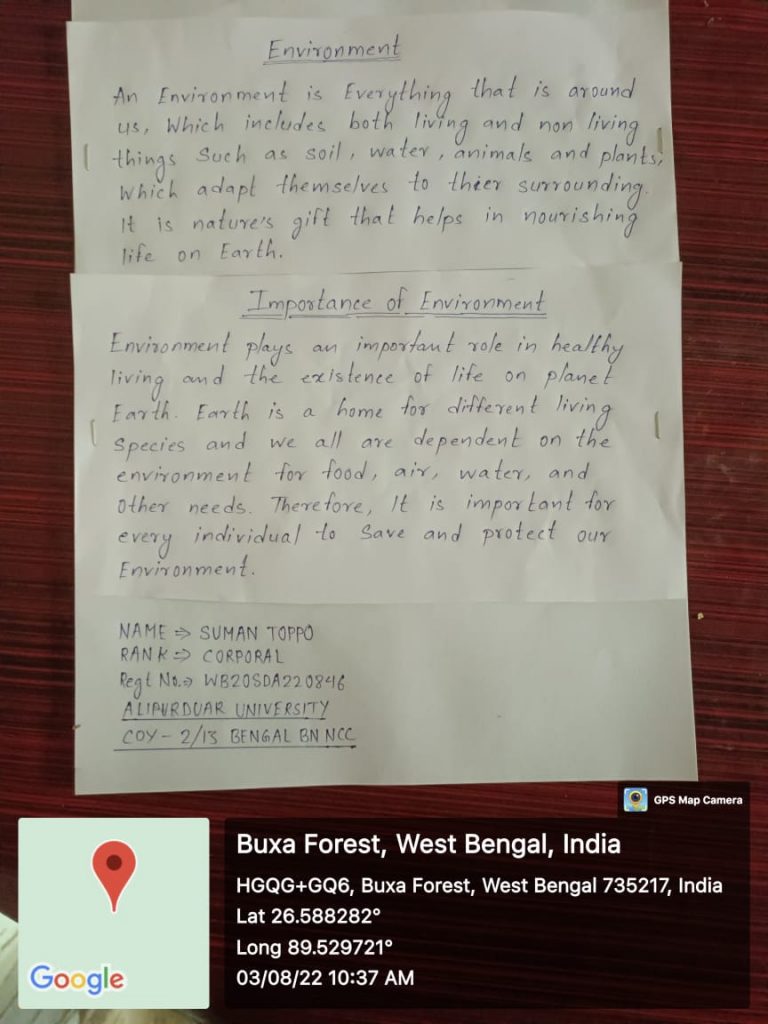 Environment
An Environment is Everything that is around
us, Which includes both living and non living
things Such as soil, water, animals and plants,
Which adapt themselves to thier surrounding.
It is nature's gift that helps in nourishing
life on Earth.
Importance of Environment
Environment plays an important role in healthy
living and the existence of life on planet
Earth. Earth is a home for different living
Species and we all are dependent on the
environment for food, air, water, and
Other needs. Therefore, It is important for
every individual to Save and protect our
Environment.
NAME ⇒ SUMAN TOPPO
RANK ⇒ CORPORAL
Regt No.⇒ WB20SDA220846
ALIPURDUAR UNIVERSITY
COY - 2/13 BENGAL BN NCC
GPS Map Camera
Buxa Forest, West Bengal, India
HGQG+GQ6, Buxa Forest, West Bengal 735217, India
Lat 26.588282°
Long 89.529721°
03/08/22 10:37 AM
Google